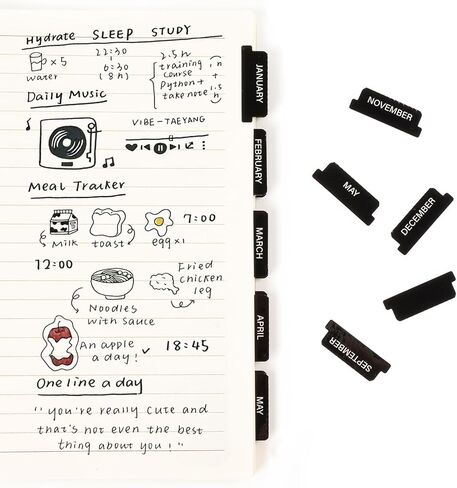 Hydrate SLEEP STUDY
x5
water
22:30
6:30
(8h)
2.5h
training
course
Python+
take note
1h
+
1.5
h
Daily Music
VIBE-TAEYANG
Meal Tracker
Milk toast egg x1 7:00
12:00
Noodles
with sauce
Fried
chicken
leg
An apple
a day! 18:45
One line a day
"you're really cute and
that's not even the best
thing about you!"
JANUARY
FEBRUARY
MARCH
APRIL
MAY
NOVEMBER
MAY
DECEMBER
SEPTEMBER